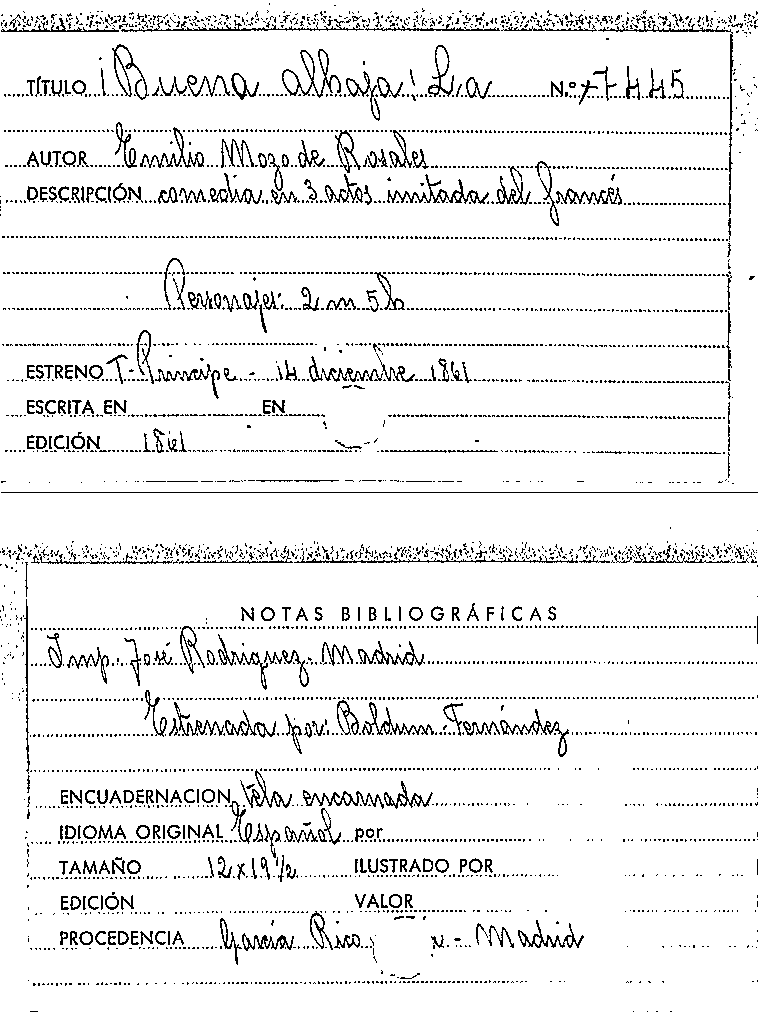 TÍTULO ¡Buena alhaja! La N.º 7445
AUTOR Emilio Mozo de Rosales
DESCRIPCIÓN comedia en 3 actos imitada del francés
Personajes: 2 m 5 h
ESTRENO T. Príncipe - 14 diciembre 1861
ESCRITA EN EN
EDICIÓN 1861
NOTAS BIBLIOGRÁFICAS
Imp. José Rodriguez. Madrid
Estrenada por: Boldum-Fernández
ENCUADERNACION tela encarnada
IDIOMA ORIGINAL Español por
TAMAÑO 12 x 19 ½ ILUSTRADO POR
EDICIÓN VALOR
PROCEDENCIA García Rico - Madrid